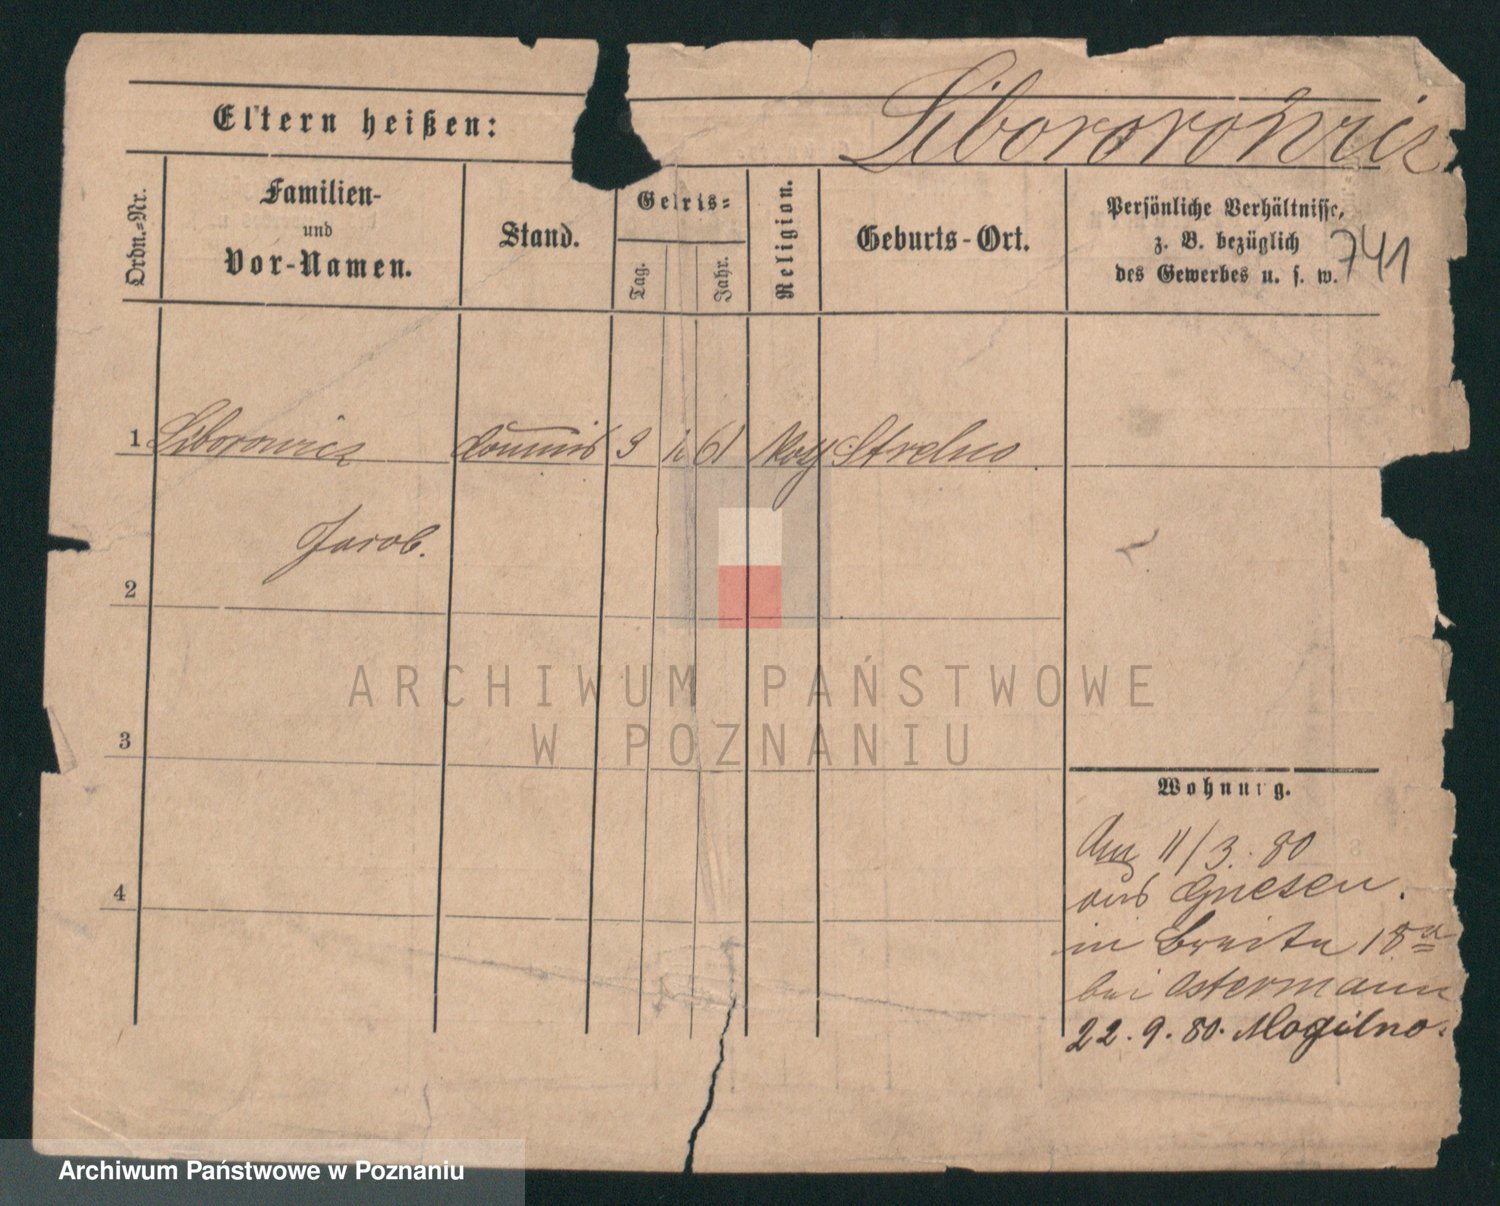 Eltern heißen:
Liborowicz
Ordn.-Nr.
Familien-
und
Vor-Namen.
Stand.
Geburts-
Tag.
Jahr.
Religion.
Geburts-Ort.
Persönliche Verhältnisse,
z. B. bezüglich
des Gewerbes u. s. w.
741
1 Liborowicz Commis 3 61 Strelno
Jacob.
2
3
4
ARCHIWUM PAŃSTWOWE
W POZNANIU
Wohnung.
11/3. 80
aus Gnesen.
in Breite 18a
bei Ostermann
22. 9. 80. Mogilno.
Archiwum Państwowe w Poznaniu